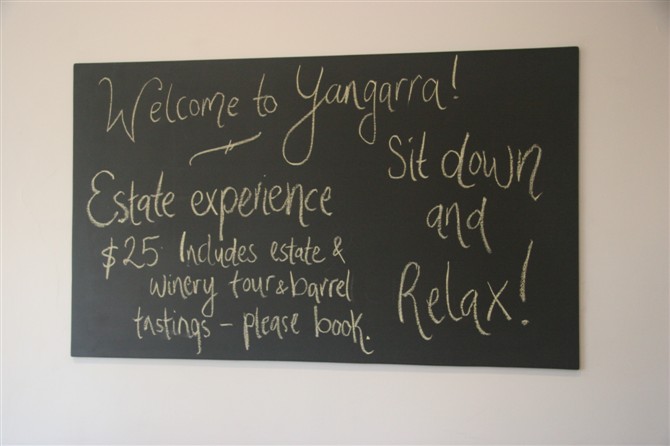 Welcome to Yangarra!
Estate experience
$25 Includes estate &
winery tour & barrel
tastings - please book.
Sit down
and
Relax!